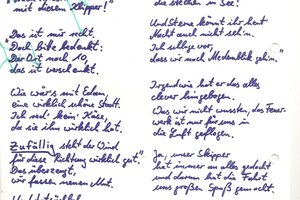 mit diesem Skipper!"
"Das ist mir recht.
Doch bitte bedenkt:
Der Ort nach 10,
das ist verschenkt.
Wie wär's mit Edam,
eine wirklich schöne Stadt.
Ich red' kein' Käse,
da sie ihn wirklich hat.
Zufällig steht der Wind
für diese Richtung wirklich gut."
Das überzeugt,
wir fassen neuen Mut.
die stechen in See!
Und Sterne könnt ihr heut
Nacht auch nicht seh'n.
Ich schlage vor,
dass wir nach Medemblik geh'n."
Irgendwie hat er das alles
clever hingebogen.
Was wir nicht wussten, das Feuer-
werk ist nur für uns in
die Luft geflogen.
Ja, unser Skipper
hat immer an alles gedacht
und darum hat die Fahrt
uns großen Spaß gemacht.